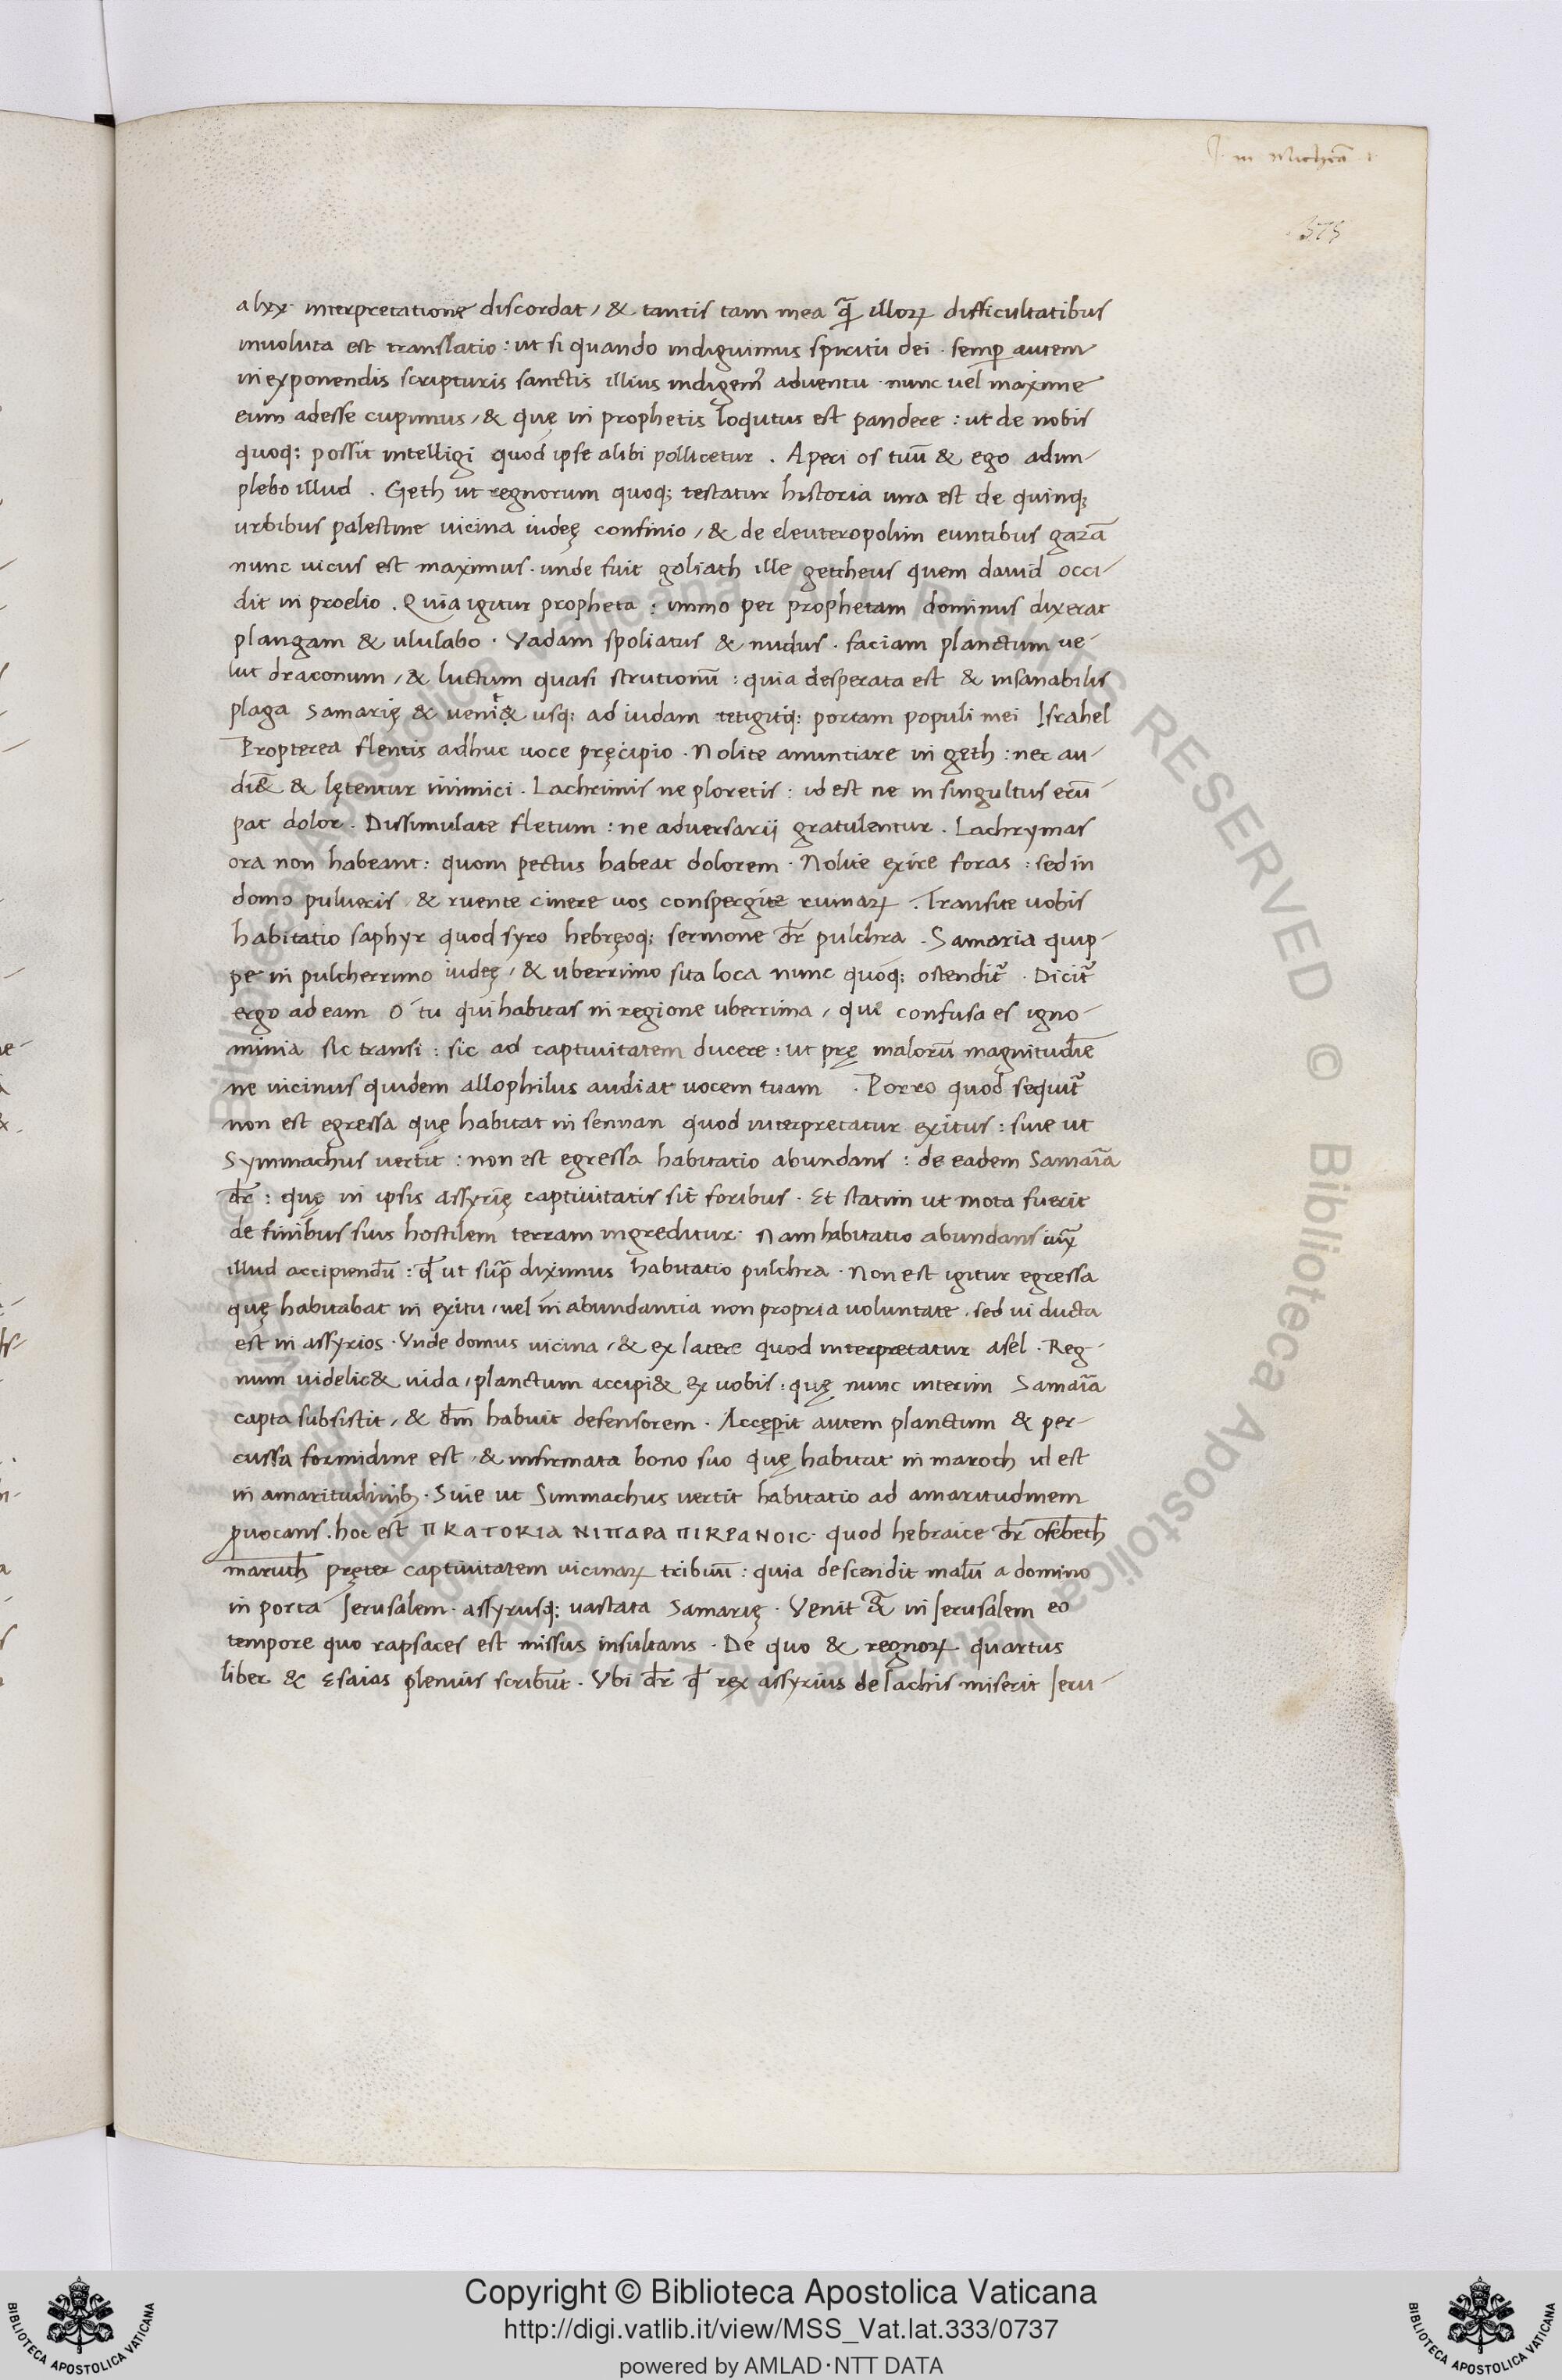 I. in Micheā 1
373
a lxx interpretatione discordat, & tantis tam mea q̄ illoꝝ difficultatibus
inuoluta est translatio: ut si quando indiguimus spiritu dei. semꝑ autem
in exponendis scripturis sanctis illius indigem᷒ aduentu. nunc uel maxime
eum adesse cupimus, & quę in prophetis loqutus est pandere: ut de nobis
quoq; possit intelligi quod ipse alibi pollicetur. Aperi os tuū & ego adim-
plebo illud. Geth ut regnorum quoq; testatur historia una est de quinq;
urbibus palestine uicina iudeę confinio, & de eleuteropolim euntibus gazā
nunc uicus est maximus. unde fuit goliath ille gettheus quem dauid occi-
dit in proelio. Quia igitur propheta: immo per prophetam dominus dixerat
plangam & ululabo. Vadam spoliatus & nudus. faciam planctum ue-
lut draconum, & luctum quasi strutionū: quia desperata est & insanabilis
plaga Samarię & uenit & usq; ad iudam tetigitq; portam populi mei Israhel
Propterea flentis adhuc uoce pręcipio. Nolite anuntiare in geth: nec au-
di&̄ & lętentur inimici. Lachrimis ne ploretis: id est ne in singultus erū-
pat dolor. Dissimulate fletum: ne aduersarij gratulentur. Lachrymas
ora non habeant: quom pectus habeat dolorem. Nolite exire foras: sed in
domo pulueris & ruente cinere uos conspergite ruinaꝝ. Transite uobis
habitatio saphyr quod syro hebręoq; sermone dr̄ pulchra. Samaria quip-
pe in pulcherrimo iudeę, & uberrimo sita loca nunc quoq; ostendit᷑. Dicit᷑
ergo ad eam O tu qui habitas in regione uberrima, que confusa es igno-
minia sic transi: sic ad captiuitatem ducere: ut prę malorū magnitudīe
ne uicinus quidem allophilus audiat uocem tuam. Porro quod sequit᷑
non est egressa quę habitat in sennan quod interpretatur exitus: siue ut
Symmachus uertit: non est egressa habitatio abundans: de eadem Samaīa
dr̄: quę in ipsis assyrię captiuitatis sit foribus. Et statim ut mota fuerit
de finibus suis hostilem terram ingreditur. Nam habitatio abundans iux̄
illud accipiendū: q̄ ut sup̄ diximus habitatio pulchra. Non est igitur egressa
quę habitabat in exitu, uel in abundantia non propria uoluntate, sed ui ducta
est in assyrios. Vnde domus uicina, & ex latere quod interpretatur asel. Reg-
num uidelic& uida, planctum accipi& ex uobis: quę nunc interim Samaīa
capta subsistit, & dm̄ habuit defensorem. Accępit autem planctum & per-
cussa formidine est, & infirmata bono suo quę habitat in maroth id est
in amaritudinib;. Siue ut Simmachus uertit habitatio ad amaritudinem
ꝓuocans. hoc est ΠΚΑΤΟΚΙΑ ΝΙΠΑΡΑ ΠΙΚΡΑΝΟΙC. quod hebraice dr̄ osebeth
maruth pręter captiuitatem uicinaꝝ tribuū: quia descendit malū a domino
in porta Jerusalem. assyrusq; uastata Samarię. Venit &̄ in Jerusalem eo
tempore quo rapsaces est missus insultans. De quo & regnoꝝ quartus
liber & Esaias plenius scribūt. Vbi dr̄ q̄ rex assyrius de lachis miserit Jeru-
Copyright © Biblioteca Apostolica Vaticana
http://digi.vatlib.it/view/MSS_Vat.lat.333/0737
powered by AMLAD·NTT DATA